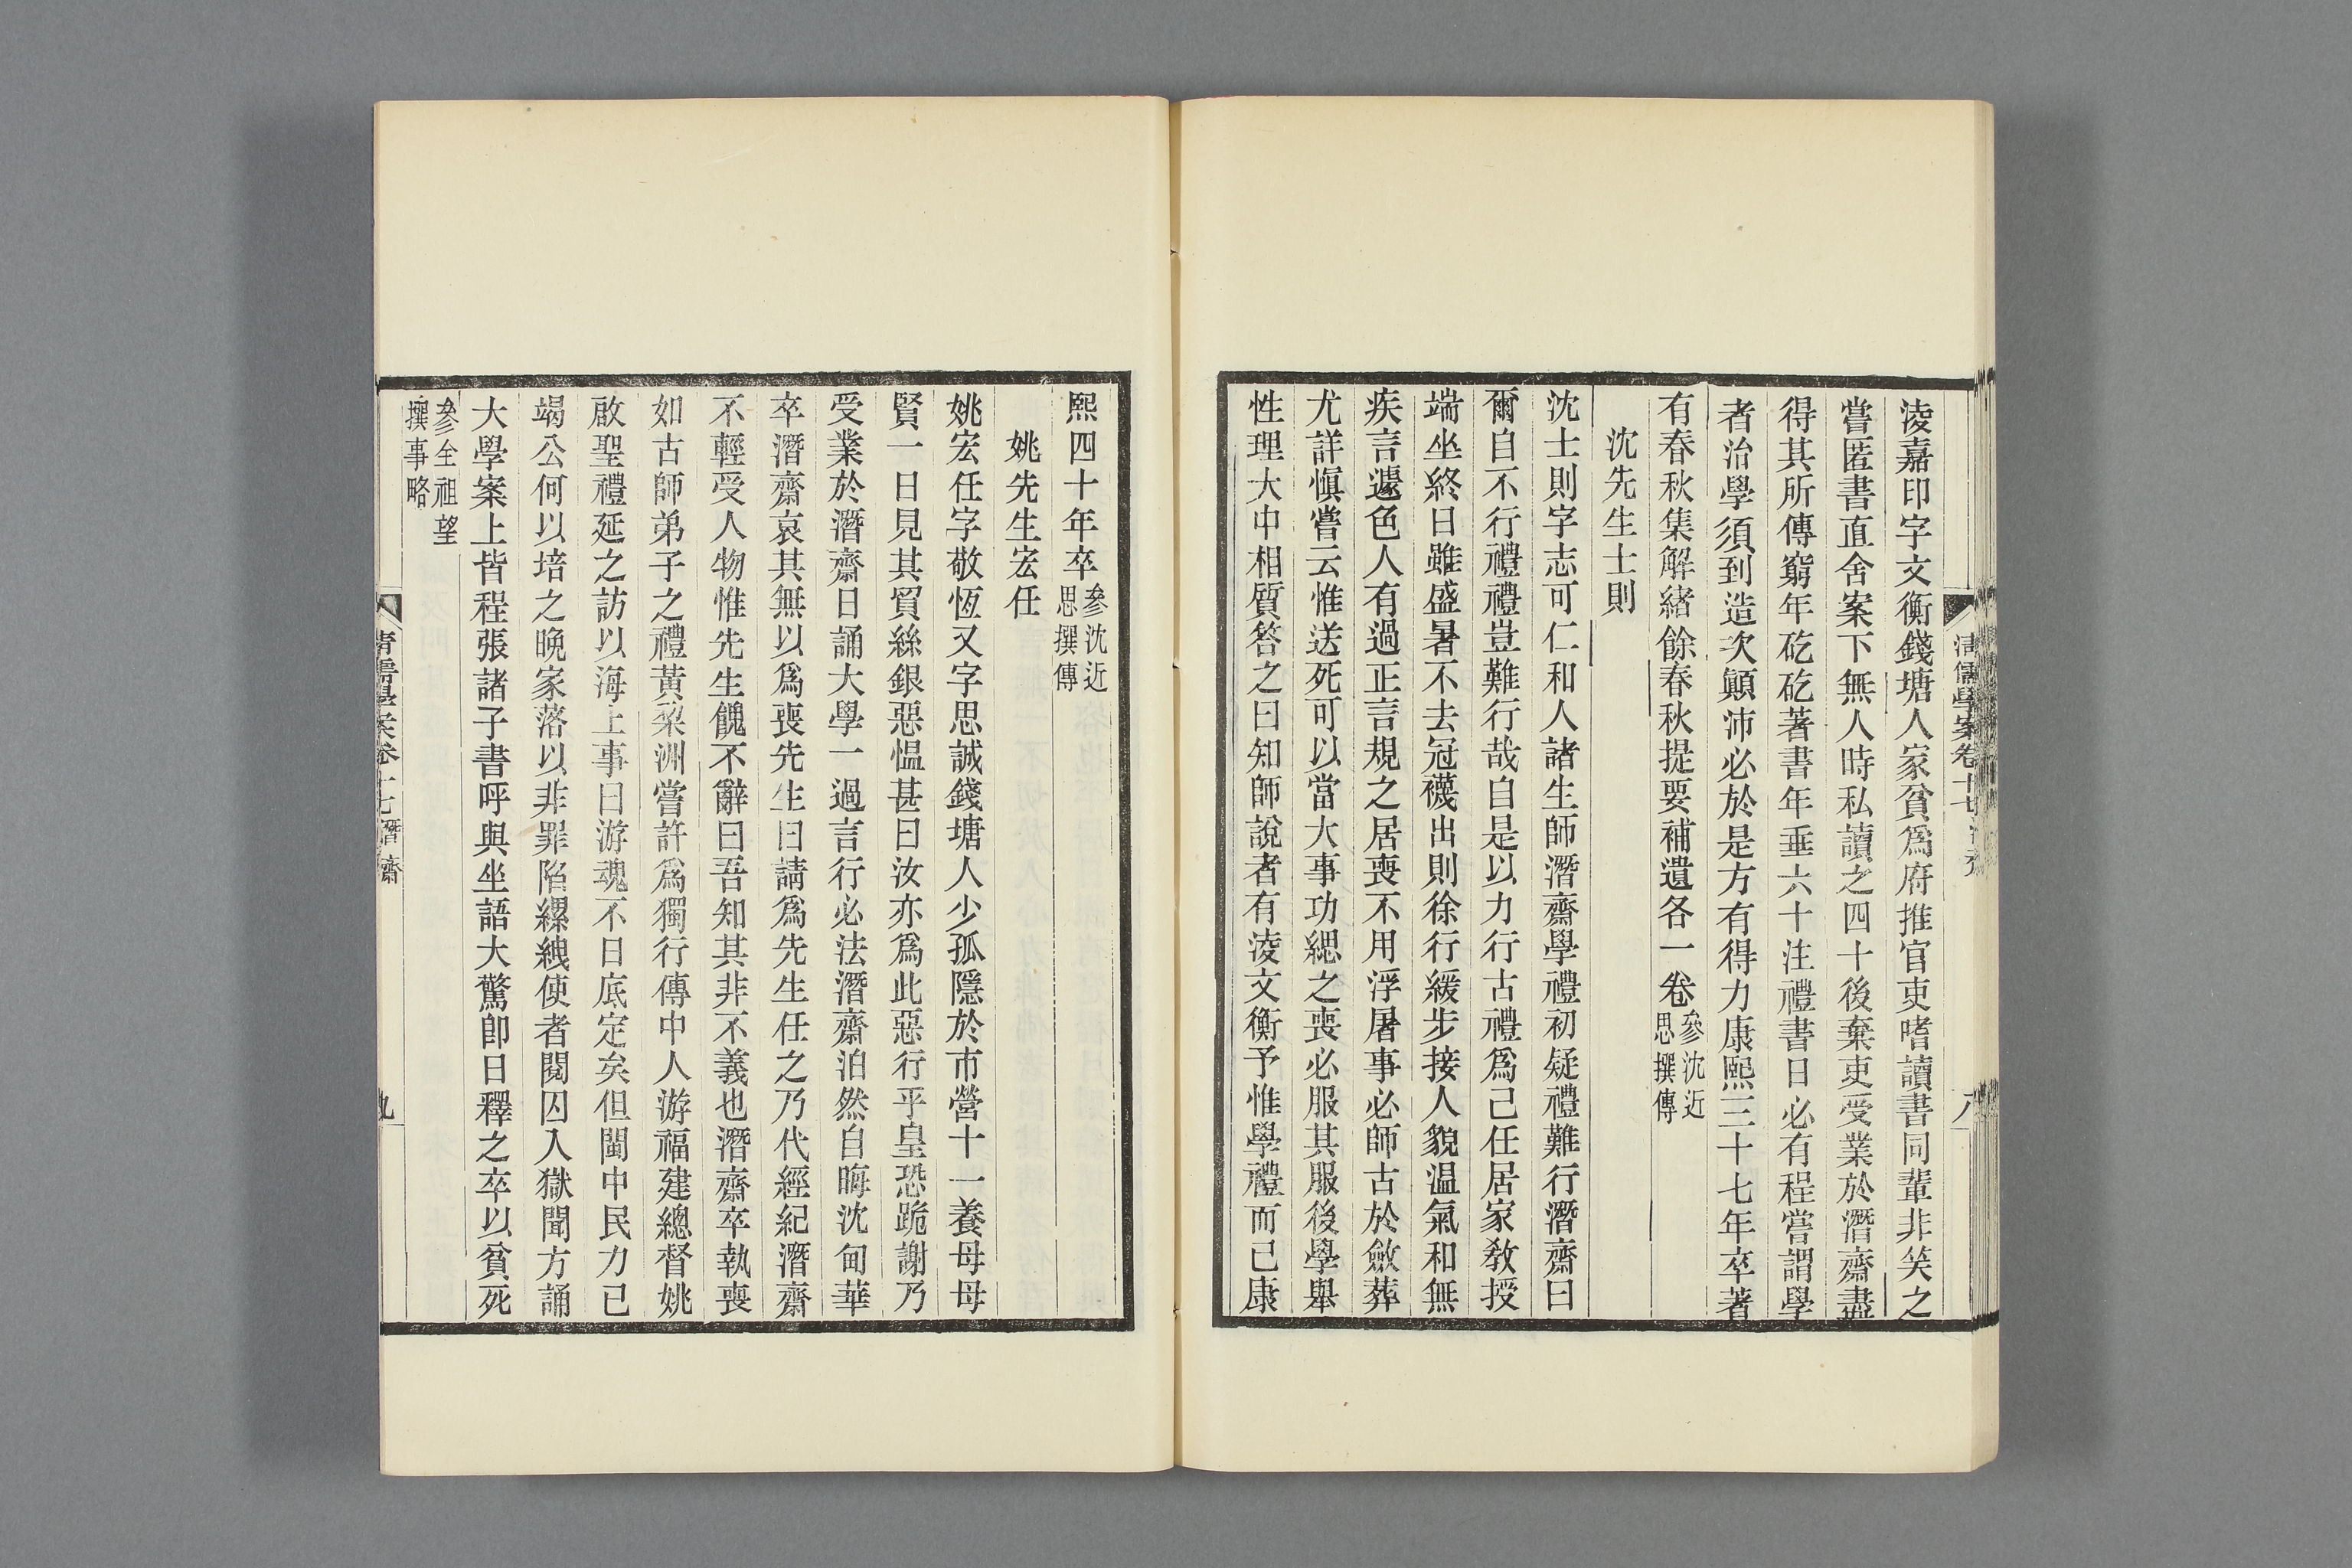 清儒學案卷十七
八
淩嘉印字文衡錢塘人家貧爲府推官吏嗜讀書同輩非笑之
嘗匿書直舍案下無人時私讀之四十後棄吏受業於潛齋盡
得其所傳窮年矻矻著書年垂六十注禮書日必有程嘗謂學
者治學須到造次顚沛必於是方有得力康熙三十七年卒著
有春秋集解緒餘春秋提要補遺各一卷參沈近思撰傳
沈先生士則
沈士則字志可仁和人諸生師潛齋學禮初疑禮難行潛齋曰
爾自不行禮禮豈難行哉自是以力行古禮爲己任居家敎授
端坐終日雖盛暑不去冠襪出則徐行緩步接人貌溫氣和無
疾言遽色人有過正言規之居喪不用浮屠事必師古於斂葬
尤詳愼嘗云惟送死可以當大事功緦之喪必服其服後學舉
性理大中相質答之曰知師說者有淩文衡予惟學禮而已康
熙四十年卒參沈近思撰傳
姚先生宏任
姚宏任字敬恆又字思誠錢塘人少孤隱於市營十一養母母
賢一日見其貿絲銀惡慍甚曰汝亦爲此惡行乎皇恐跪謝乃
受業於潛齋日誦大學一過言行必法潛齋泊然自晦沈甸華
卒潛齋哀其無以爲喪先生曰請爲先生任之乃代經紀潛齋
不輕受人物惟先生餽不辭曰吾知其非不義也潛齋卒執喪
如古師弟子之禮黃棃洲嘗許爲獨行傳中人游福建總督姚
啟聖禮延之訪以海上事曰游魂不日底定矣但閩中民力已
竭公何以培之晩家落以非罪陷縲絏使者閱囚入獄聞方誦
大學案上皆程張諸子書呼與坐語大驚卽日釋之卒以貧死
參全祖望撰事略
清儒學案卷十七 潛齋
九